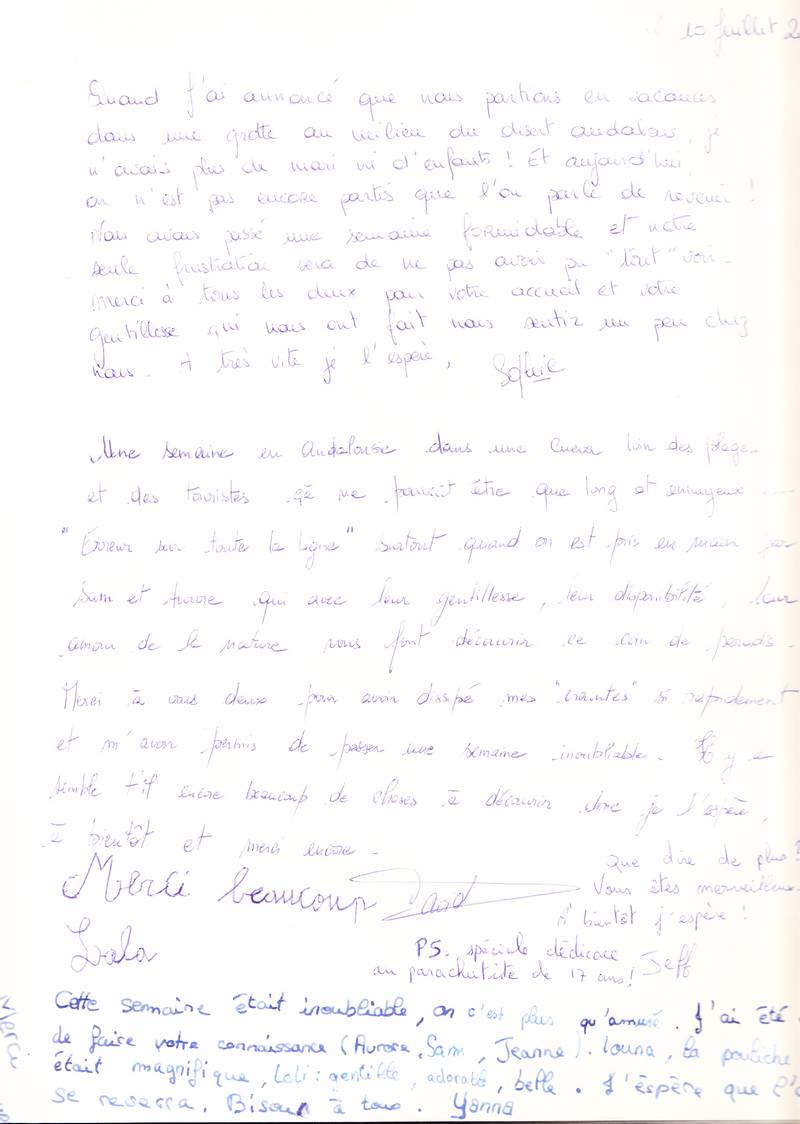 10 Juillet
Quand j'ai annoncé que nous partions en vacances
dans une grotte au milieu du désert andalou, je
n'avais plus de mari ni d'enfants ! Et aujourd'hui
on n'est pas encore partis que l'on parle de revenir !
Nous avons passé une semaine formidable et notre
seule frustration sera de ne pas avoir pu "tout" voir.
Merci à tous les deux pour votre accueil et votre
gentillesse qui nous ont fait nous sentir un peu chez
nous. A très vite je l'espère,
Sophie
Une semaine en Andalousie dans une Cueva loin des plage
et des touristes ça ne pouvait être que long et ennuyeux ....
"Erreur sur toute la ligne" surtout quand on est pris en main par
Sam et Aurore qui avec leur gentillesse, leur disponibilité, leur
amour de la nature vous font découvrir ce coin de paradis.
Merci à vous deux pour avoir dissipé mes "craintes" si rapidement
et m'avoir permis de passer une semaine inoubliable. Il y a
semble t'il encore beaucoup de choses à découvrir donc je l'espère,
à bientôt et merci encore.
Merci beaucoup
Lala
Que dire de plus ?
Vous êtes merveilleux
A bientôt j'espère !
PS: spéciale dédicace
au parachutiste de 17 ans !
Jeff
Cette semaine était inoubliable, on c'est plus qu'amusé. J'ai été
de faire votre connaissance (Aurore, Sam, Jeanne). Louna, la pouliche
était magnifique, Loli : gentille, adorable, belle. J'éspère que l'o
se reverra. Bisous à tous. Yanna
Merci